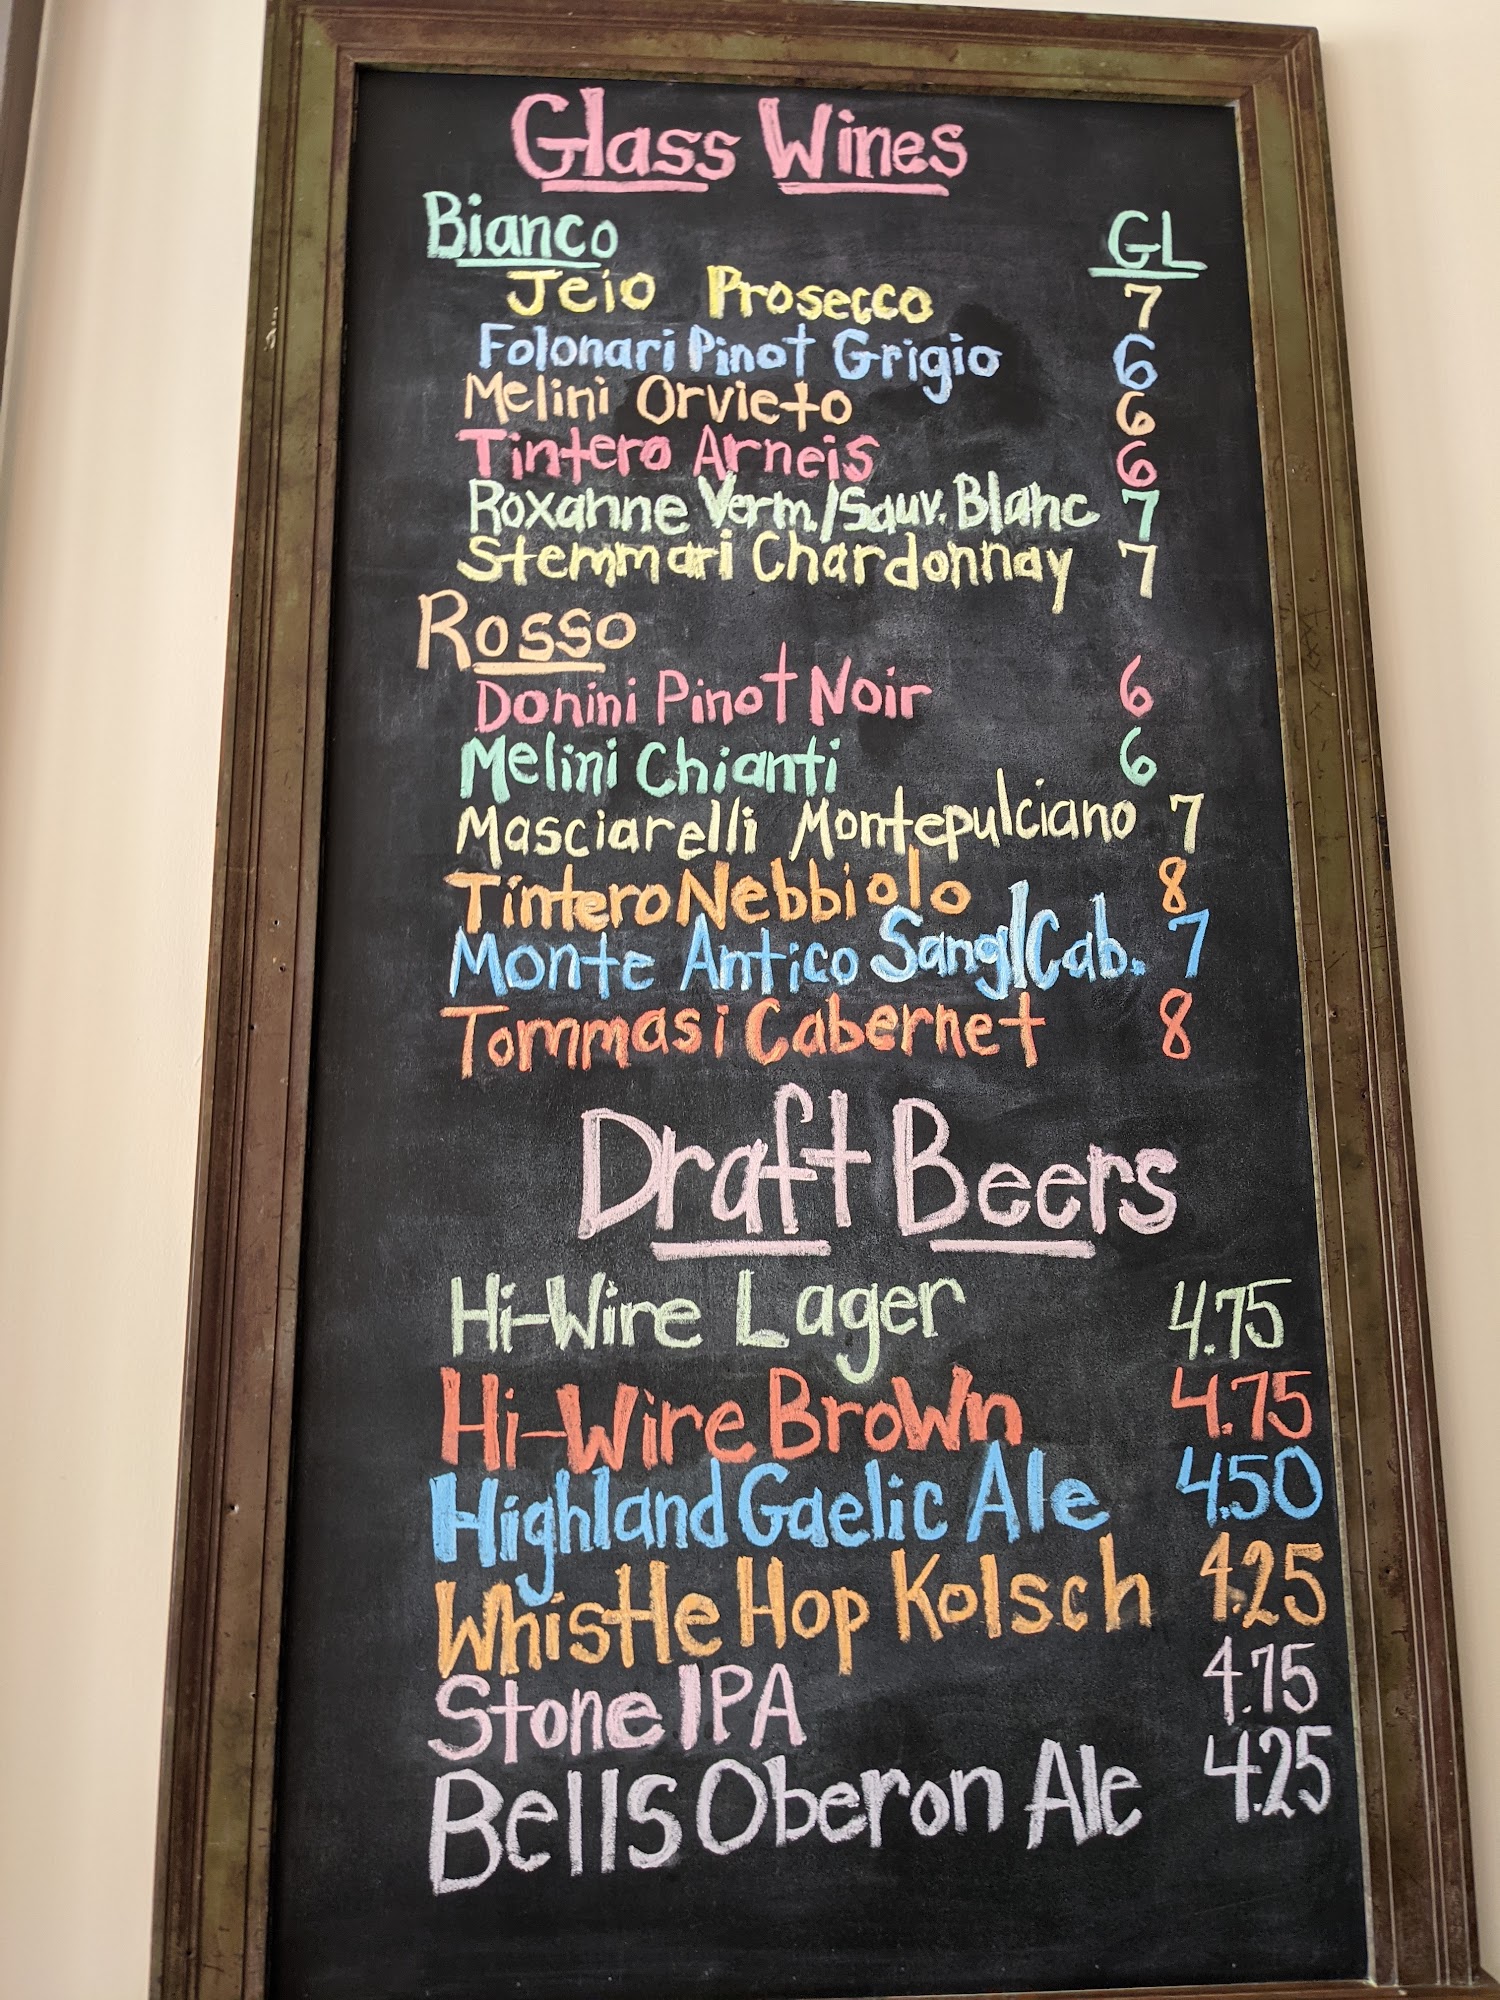 Glass Wines
Bianco GL
Jeio Prosecco 7
Folonari Pinot Grigio 6
Melini Orvieto 6
Tintero Arneis 6
Roxanne Verm./Sauv. Blanc 7
Stemmari Chardonnay 7
Rosso
Donini Pinot Noir 6
Melini Chianti 6
Masciarelli Montepulciano 7
Tintero Nebbiolo 8
Monte Antico Sang/Cab. 7
Tommasi Cabernet 8
Draft Beers
Hi-Wire Lager 4.75
Hi-Wire Brown 4.75
Highland Gaelic Ale 4.50
Whistle Hop Kolsch 4.25
Stone IPA 4.75
Bells Oberon Ale 4.25